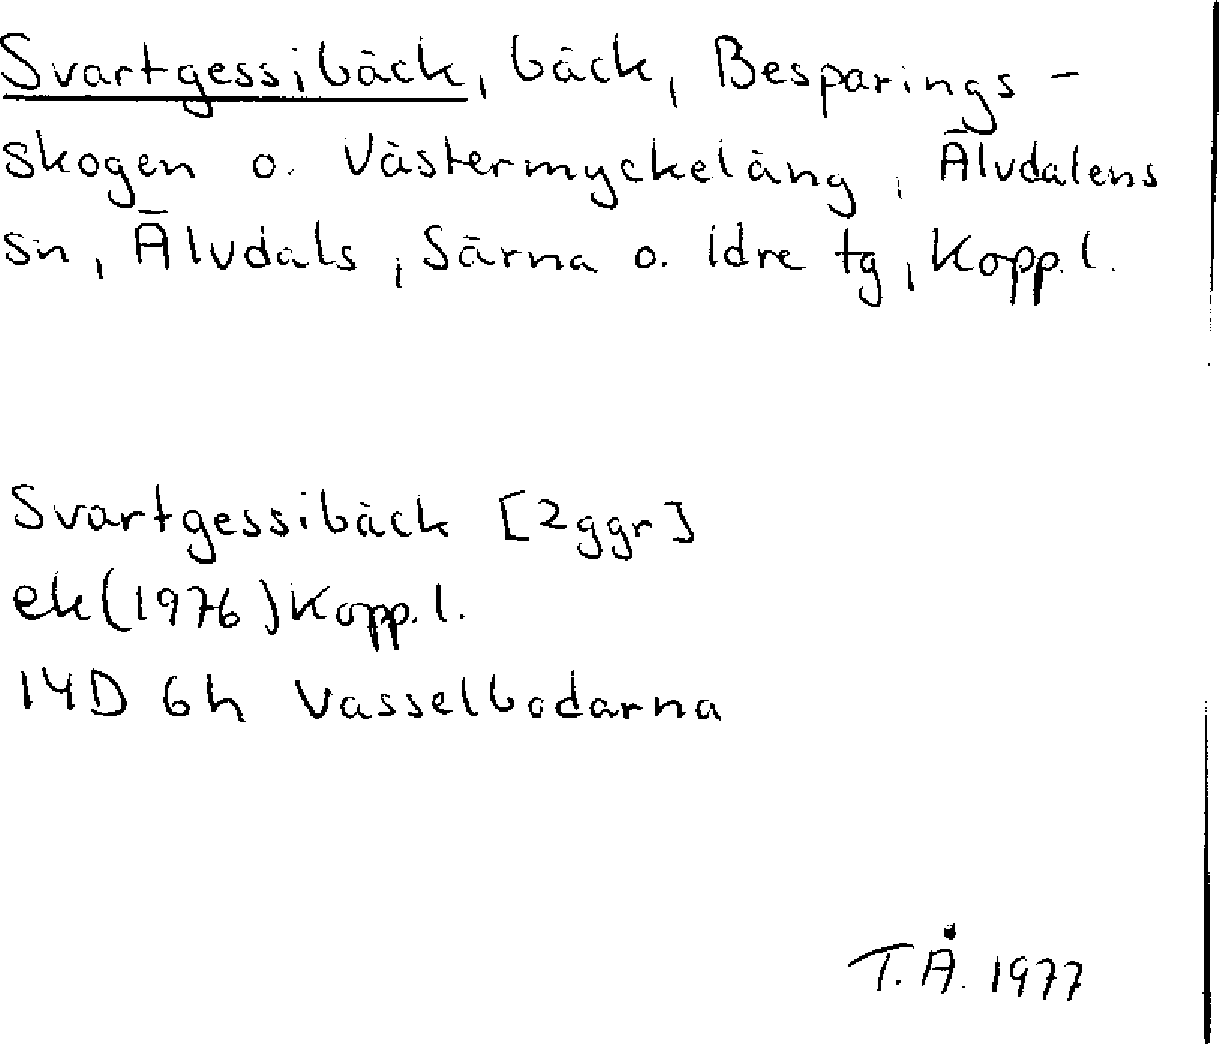 Svartgessibäck, bäck, Besparings-
skogen o. Västermyckeläng, Älvdalens
sn, Älvdals, Särna o. Idre tg, Kopp.l.
Svartgessibäck [2ggr]
ek(1976)Kopp.l.
14D 6h Vasselbodarna
T.Å. 1977